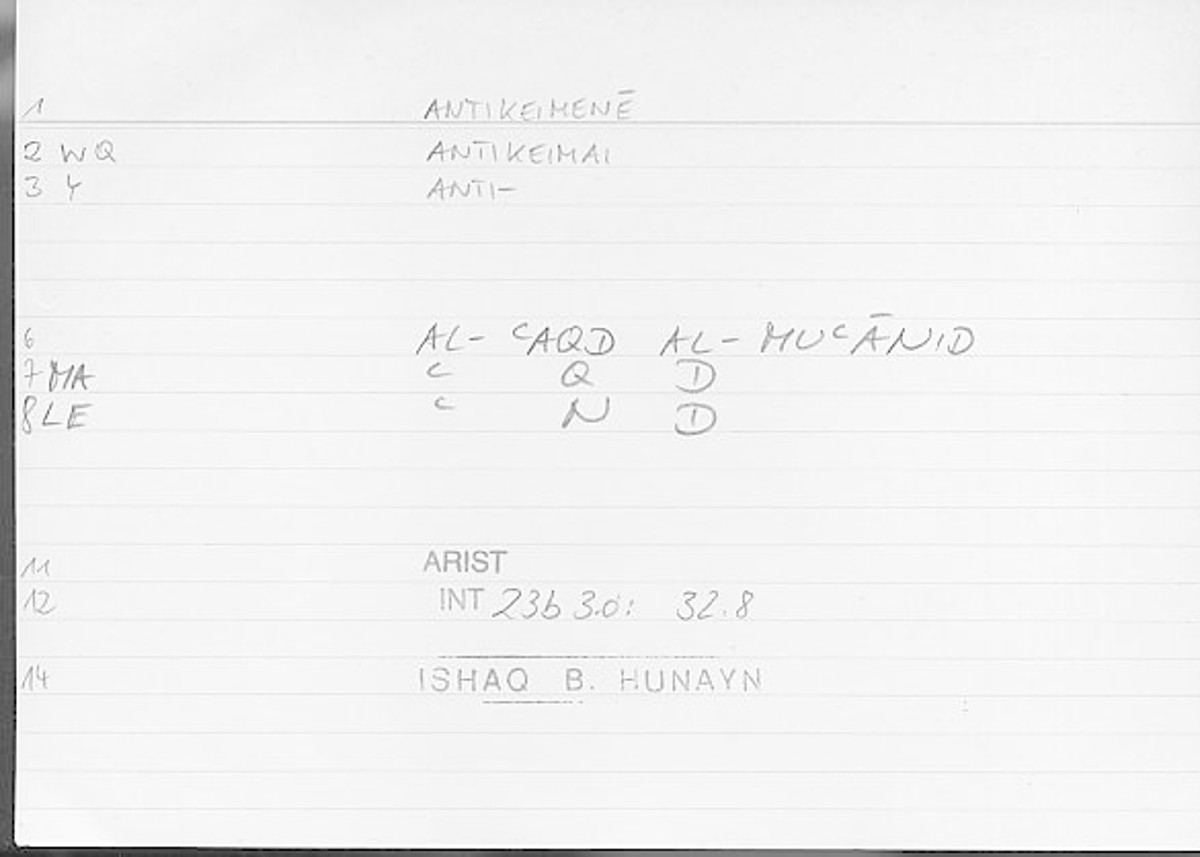 1 ANTIKEIMENĒ
2 WQ ANTIKEIMAI
3 Y ANTI-
6 AL- ʿAQD AL- MUʿĀNID
7 MA ʿ Q D
8 LE ʿ N D
11 ARIST
12 INT 23b 3.0: 32.8
14 ISHAQ B. HUNAYN